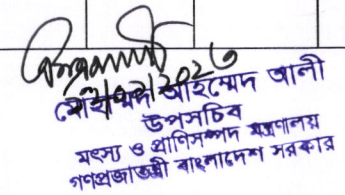 মোহাম্মদ আহম্মেদ আলী
উপসচিব
মৎস্য ও প্রাণিসম্পদ মন্ত্রণালয়
গণপ্রজাতন্ত্রী বাংলাদেশ সরকার